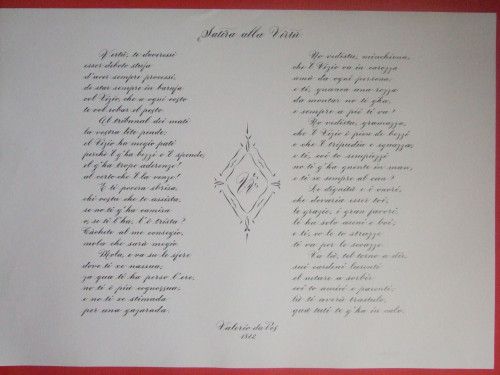 Satira alla Virtù
Vertù, te dovaressi
esser deboto stufa
d'aver sempre processi,
de star sempre in barufa
col Vizio, che a ogni costo
te vol robar el posto.
Al tribunal dei mati
la vostra lite pende;
el Vizio ha megio pati
perché l'g'ha bezzi e l spende,
el g'ha tropo aderenze!
al certo che l la venze!
E ti povera sbrisa,
chi vostu che te assista,
se no ti g'ha camisa
e, se ti l'ha, l'è trista?
Escolta al mio consegio,
mola che sarà megio
Mola, e va su le spere
dove ti xe nassua;
za qua ti ha perso l'ere,
no ti è più cognossua;
e no ti xe stimada
per una gazarada.
No vedistu, minchiona,
che l Vizio va in carozza
amà da ogni persona,
e ti, quando una rozza
da montar no ti g'ha,
e sempre a pié ti va?
No vedistu, gramazza,
che l Vizio è pien de bezzi
e che l tripudia e sguazza;
e ti, coi to
no ti g'ha gnente in man,
e ti xe sempre al can?
Le dignità e i onori,
che dovaria esser toi,
le grazie, i gran favori
li ha solo aseni e boi;
e ti, se le to strazze
ti va per le
Va là, tel torno a dir,
coi to amici e parenti;
là ti averà trastulo,
qua tuti te g'ha in culo.
Valerio da Pos
1822